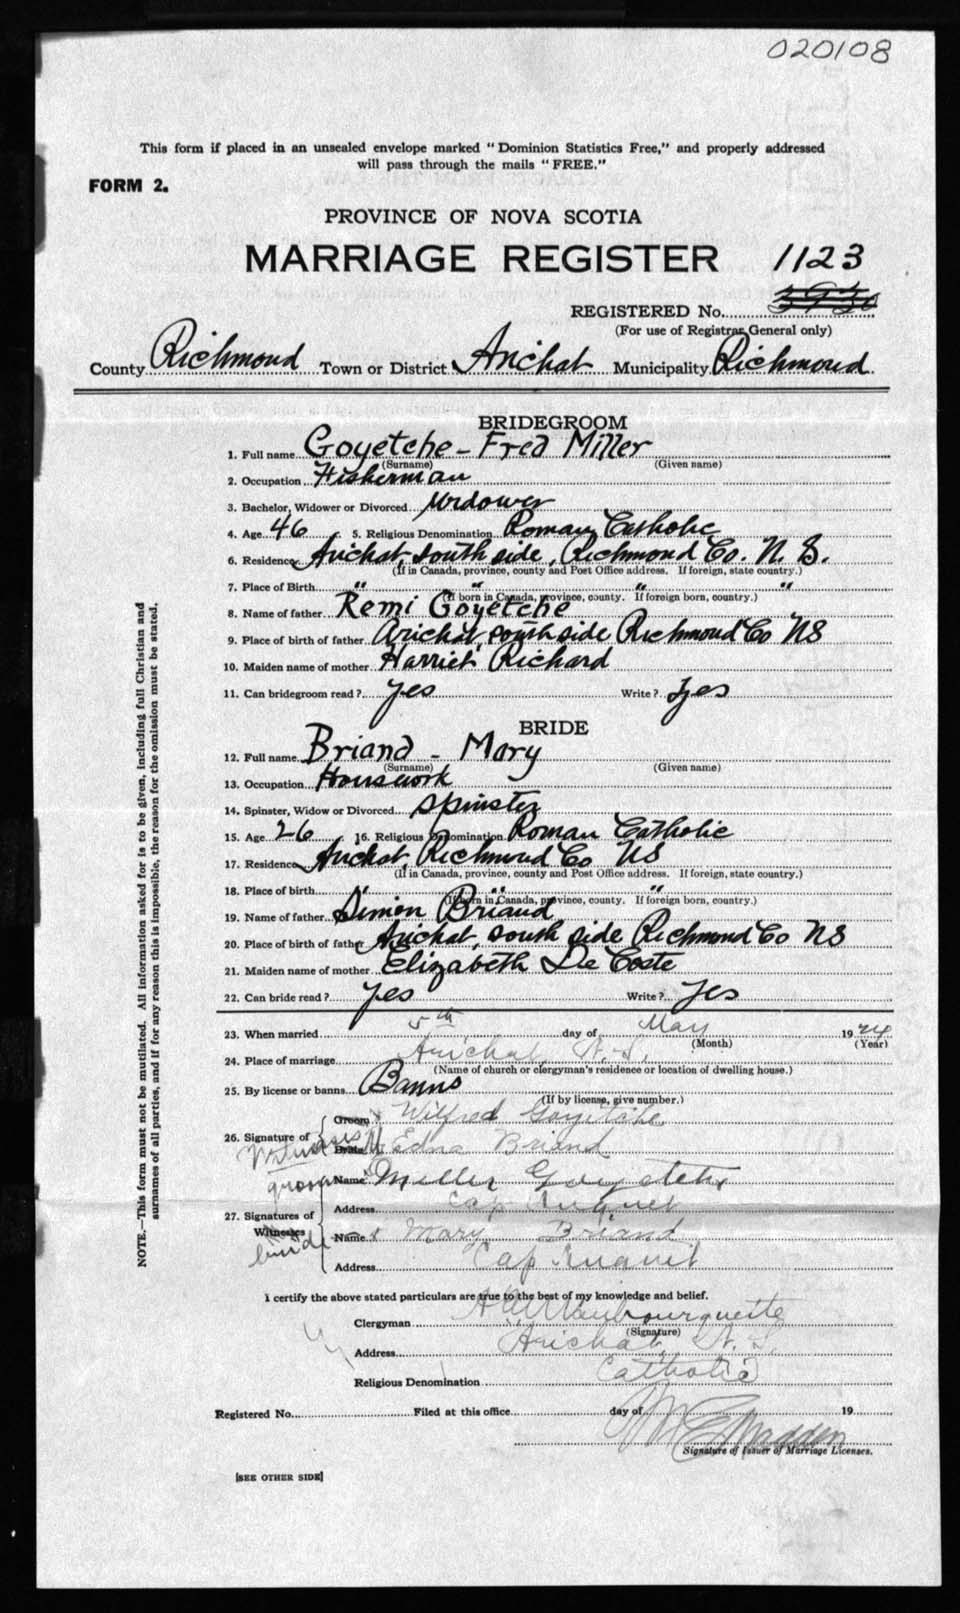 020108
This form if placed in an unsealed envelope marked "Dominion Statistics Free," and properly addressed
will pass through the mails "FREE."
FORM 2.
PROVINCE OF NOVA SCOTIA
MARRIAGE REGISTER 1123
REGISTERED No. 3930
(For use of Registrar General only)
County Richmond Town or District Arichat Municipality Richmond
BRIDEGROOM
1. Full name Goyetche - Fred Miller
(Surname) (Given name)
2. Occupation Fisherman
3. Bachelor, Widower or Divorced Widower
4. Age 46 5. Religious Denomination Roman Catholic
6. Residence Arichat, south side, Richmond Co. N. S.
(If in Canada, province, county and Post Office address. If foreign, state country.)
7. Place of Birth " " " "
(If born in Canada, province, county. If foreign born, country.)
8. Name of father Remi Goyetche
9. Place of birth of father Arichat, south side Richmond Co NS
10. Maiden name of mother Harriet Richard
11. Can bridegroom read? yes Write? yes
BRIDE
12. Full name Briand - Mary
(Surname) (Given name)
13. Occupation Housework
14. Spinster, Widow or Divorced spinster
15. Age 26 16. Religious Denomination Roman Catholic
17. Residence Arichat, Richmond Co NS
(If in Canada, province, county and Post Office address. If foreign, state country.)
18. Place of birth " " "
(If born in Canada, province, county. If foreign born, country.)
19. Name of father Simon Briand
20. Place of birth of father Arichat, south side Richmond Co NS
21. Maiden name of mother Elizabeth De Coste
22. Can bride read? yes Write? yes
23. When married 5th day of May 1924
(Month) (Year)
24. Place of marriage Arichat, N. S.
(Name of church or clergyman's residence or location of dwelling house.)
25. By license or banns Banns
(If by license, give number.)
Groom Wilfred Goyetche
26. Signature of Witnesses Bride Edna Briand
groom Name Miller Goyetche
Address Cap Auguet
27. Signatures of
Witnesses bride Name Mary Briand
Address Cap Auguet
I certify the above stated particulars are true to the best of my knowledge and belief.
Clergyman
(Signature)
Address Arichat, N. S.
Religious Denomination Catholic
Registered No. Filed at this office day of 19
Madden
Signature of Issuer of Marriage Licenses.
[SEE OTHER SIDE]
NOTE.—This form must not be mutilated. All information asked for is to be given, including full Christian and
surnames of all parties, and if for any reason this is impossible, the reason for the omission must be stated.